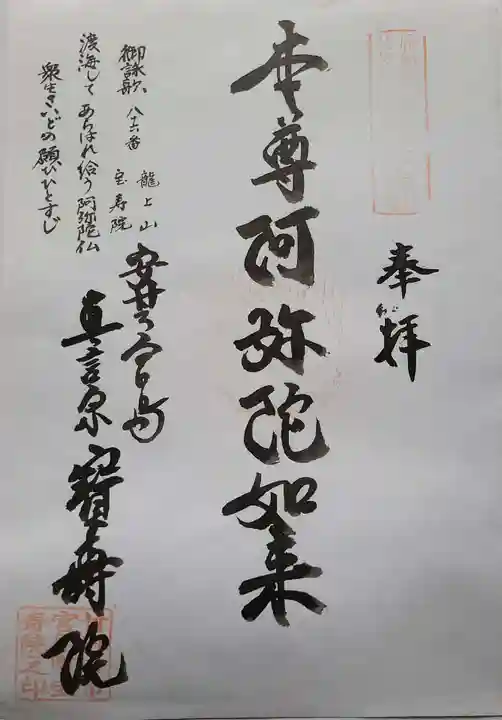 奉拝
本尊阿弥陀如来
御詠歌 八十六番 龍上山 宝寿院
渡海して あらはれ給う 阿弥陀仏
衆生さいどの願ひひとすじ
真言宗 寳壽院